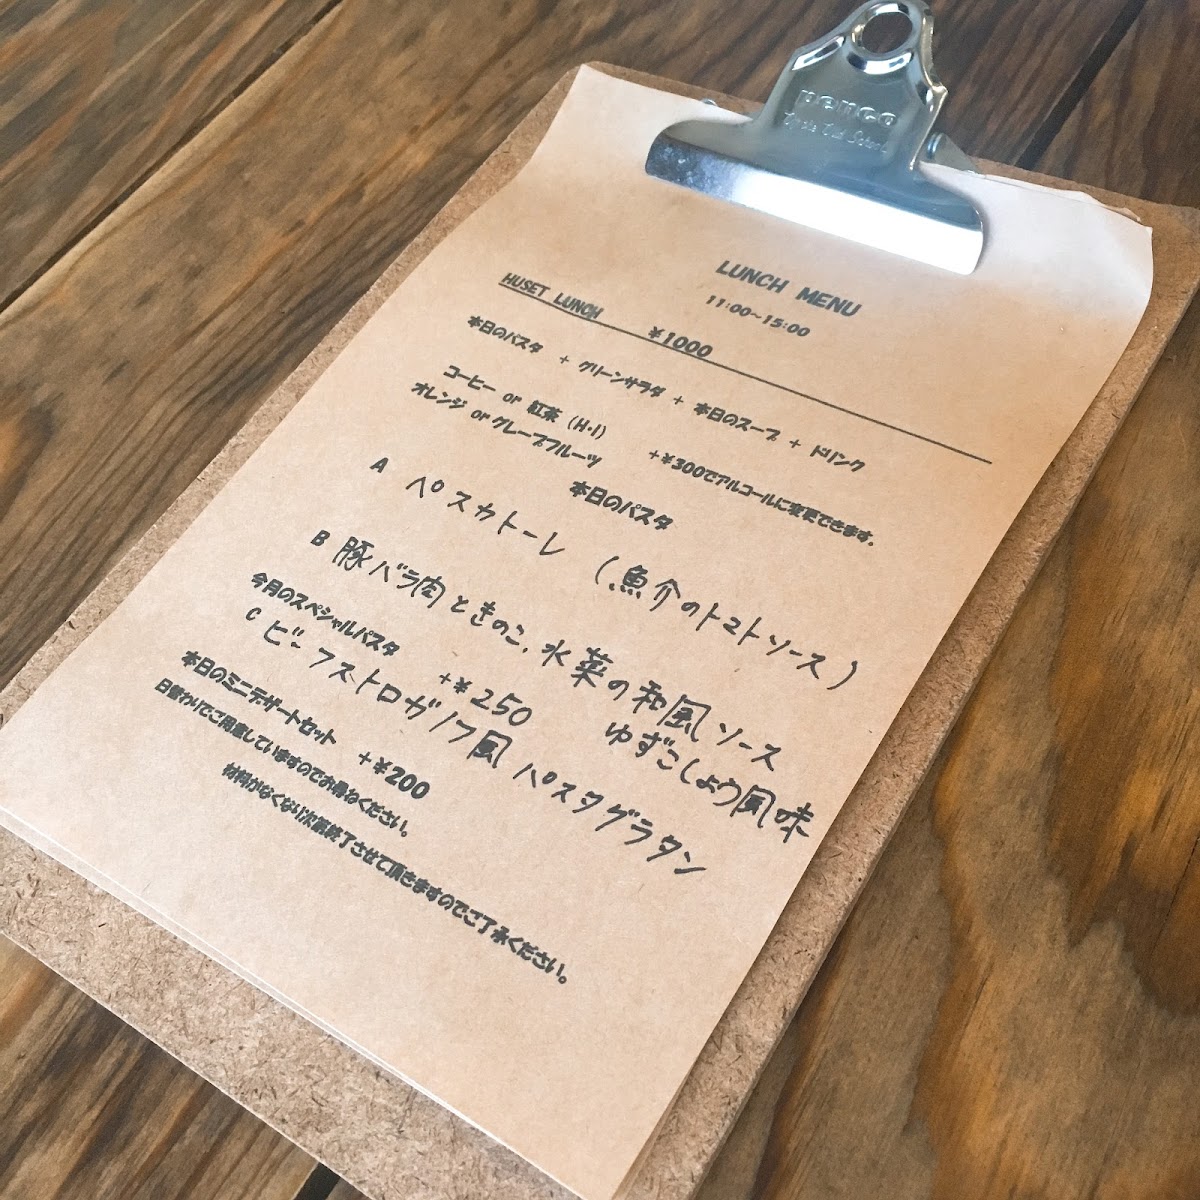 penco
LUNCH MENU
11:00~15:00
HUSET LUNCH ¥1000
本日のパスタ + グリーンサラダ + 本日のスープ + ドリンク
コーヒー or 紅茶 (H・I)
オレンジ or グレープフルーツ
+¥300でアルコールに変更できます。
本日のパスタ
A ペスカトーレ (魚介のトマトソース)
B 豚バラ肉ときのこ、水菜の和風ソース
ゆずこしょう風味
今月のスペシャルパスタ +¥250
C ビーフストロガノフ風 パスタグラタン
本日のミニデザートセット +¥200
日替わりでご用意していますのでお尋ねください。
材料がなくなり次第終了させて頂きますのでご了承ください。